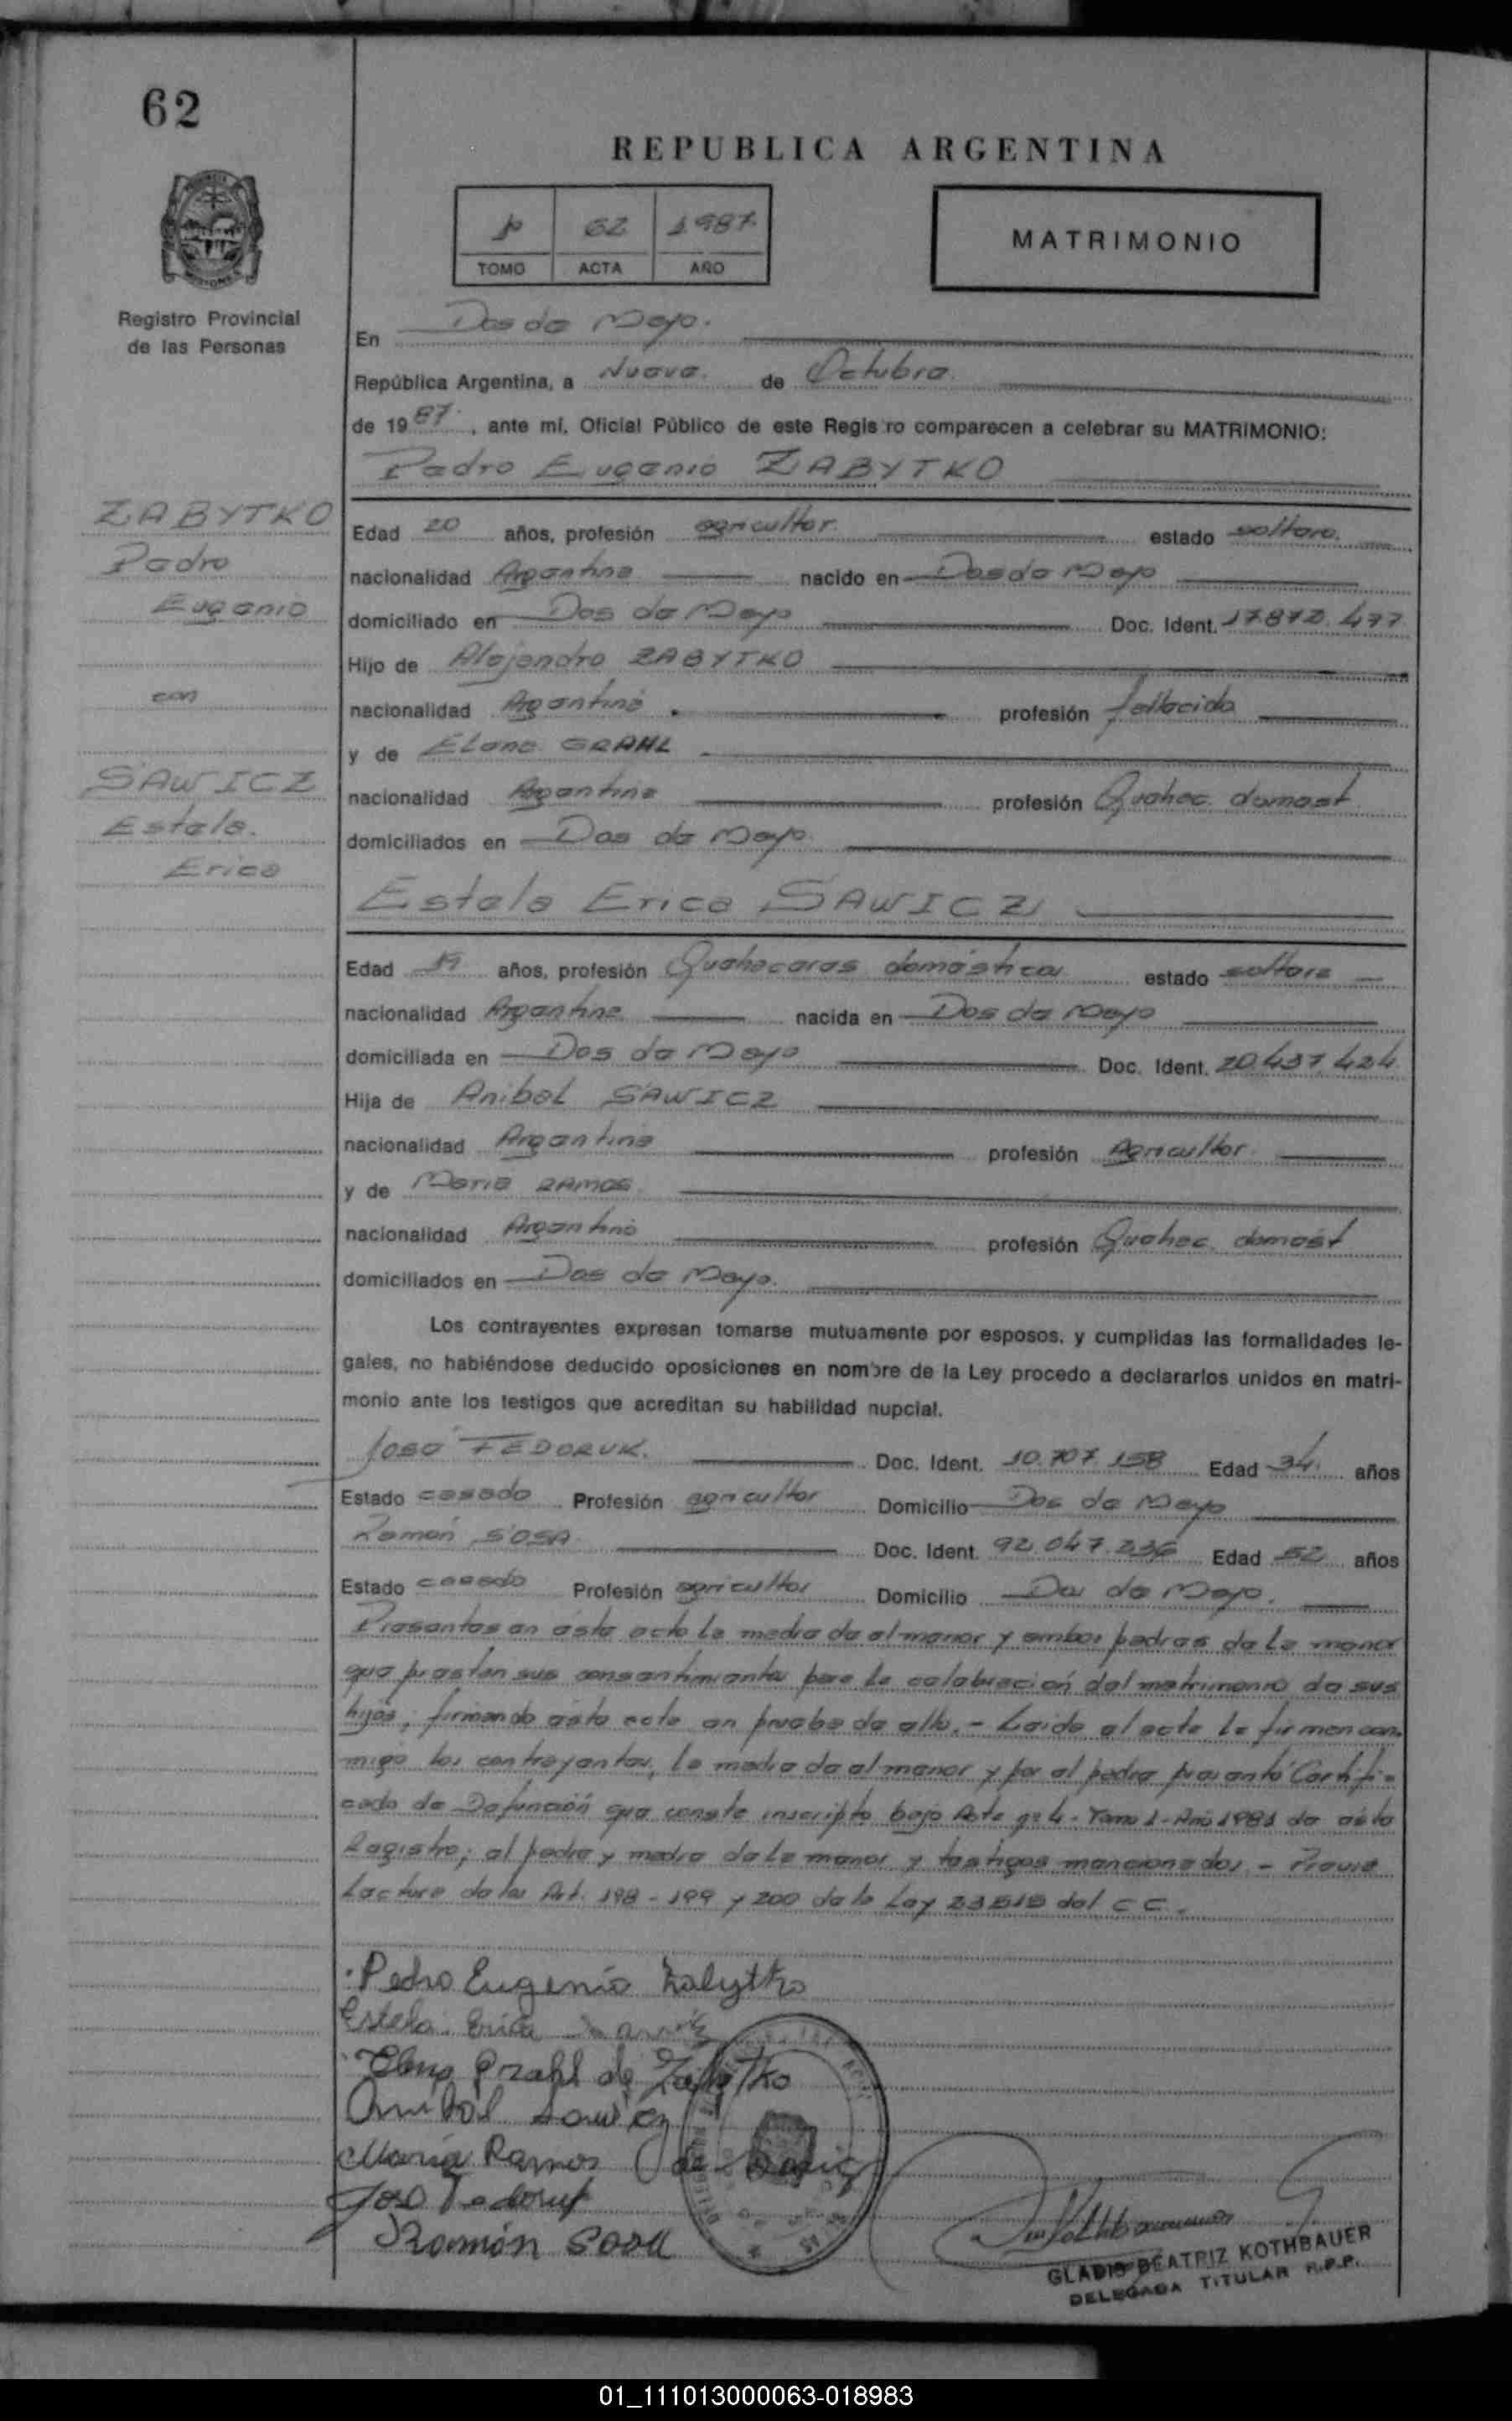 62
REPUBLICA ARGENTINA
62 1987
TOMO ACTA AÑO
MATRIMONIO
Registro Provincial
de las Personas
En Dos de Mayo.
República Argentina, a Nueve de Octubre
de 1987, ante mí, Oficial Público de este Regis ro comparecen a celebrar su MATRIMONIO:
Pedro Eugenio ZABYTKO
ZABYTKO
Pedro
Eugenio
con
SAWICZ
Estela
Erica
Edad 20 años, profesión agricultor estado soltero
nacionalidad Argentina nacido en Dos de Mayo
domiciliado en Dos de Mayo Doc. Ident. 17.872.477
Hijo de Alejandro ZABYTKO
nacionalidad Argentina profesión fallecido
y de Elena GRAHL
nacionalidad Argentina profesión Quehac. domést
domiciliados en Dos de Mayo
Estela Erica SAWICZ
Edad 19 años, profesión Quehaceres domésticos estado soltera
nacionalidad Argentina nacida en Dos de Mayo
domiciliada en Dos de Mayo Doc. Ident. 20.437.424
Hija de Anibal SAWICZ
nacionalidad Argentina profesión Agricultor
y de Maria RAMOS
nacionalidad Argentina profesión Quehac. domést
domiciliados en Dos de Mayo.
Los contrayentes expresan tomarse mutuamente por esposos, y cumplidas las formalidades le-
gales, no habiéndose deducido oposiciones en nombre de la Ley procedo a declararlos unidos en matri-
monio ante los testigos que acreditan su habilidad nupcial.
José FEDORUK. Doc. Ident. 10.707.158 Edad 34 años
Estado casado Profesión agricultor Domicilio Dos de Mayo
Ramón SOSA Doc. Ident. 92.047.236 Edad 52 años
Estado casado Profesión agricultor Domicilio Dos de Mayo.
Presentes en éste acto la madre de el menor y ambos padres de la menor
que prestan sus consentimientos para la celebración del matrimonio de sus
hijos, firmando ésta acta en prueba de ello.- Leida el acta la firman con-
migo los contrayentes, la madre de el menor y por el padre presentó Certifi-
cado de Defunción que consta inscripto bajo Acta nº 4- Tomo 1-Año 1981 de éste
Registro; el padre y madre de la menor y testigos mencionados.- Previa
Lectura de los Art. 198-199 y 200 de la Ley 23515 del C C.
Pedro Eugenio Zabytko
Estela Erica Sawicz
Elena Grahl de Zabytko
Anibal Sawicz
Maria Ramos de Sawicz
José Fedoruk
Ramón Sosa
GLADIS BEATRIZ KOTHBAUER
DELEGADA TITULAR R.P.P.
01_111013000063-018983